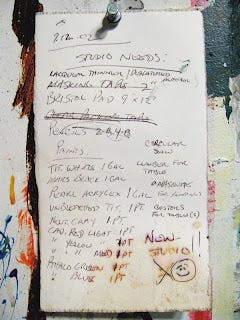 8.12.02
STUDIO NEEDS:
LACQUER THINNER / DENATURED ALCOHOL
MASKING TAPE 2"
BRISTOL PAD 9 x 12"
PENCILS 2B, 4B
PAINTS
CIRCULAR SAW
TIT. WHITE 1 GAL
LUMBER FOR TABLE
MARS BLACK 1 GAL
PEARL ACRYLIX 1 GAL
UNBLEACHED TIT. 1 PT.
CASTERS FOR TABLE(S)
1 PT.
CAD. RED LIGHT 1 PT
" YELLOW " 1 PT
NEW
" " MED 1 PT
STUDIO !!
PTHALO GREEN 1 PT
" BLUE 1 PT